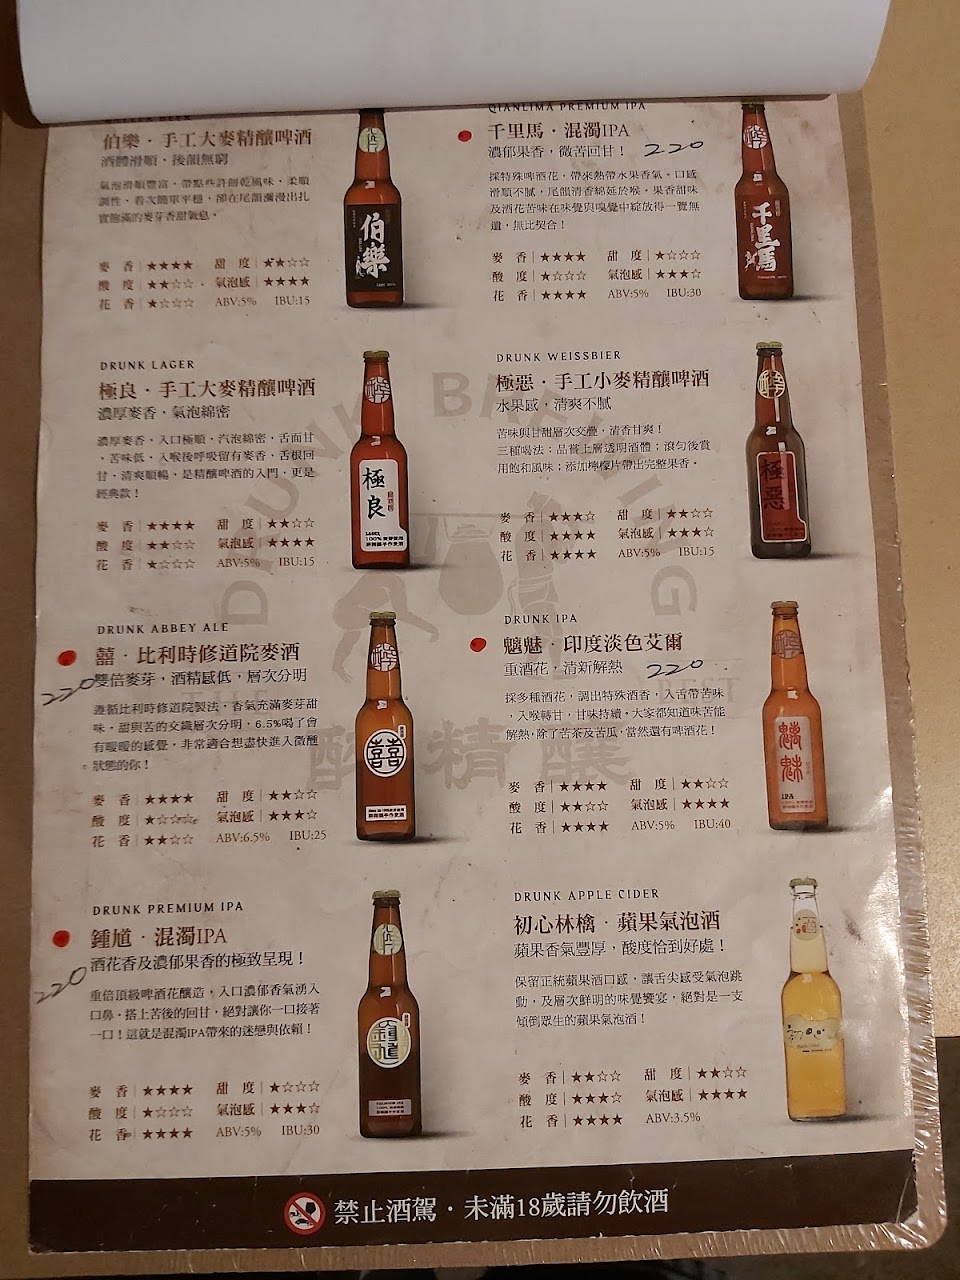 伯樂．手工大麥精釀啤酒
酒體滑順，後韻無窮
氣泡滑順豐富，帶點些許餅乾風味，柔順
調性，首次簡單平穩，卻在尾韻瀰漫出扎
實飽滿的麥芽香甜氣息。
麥 香 ★★★★ 甜 度 ★★☆☆
酸 度 ★★☆☆ 氣泡感 ★★★★
花 香 ★☆☆☆ ABV:5% IBU:15
伯樂
QIANLIMA PREMIUM IPA
千里馬．混濁IPA
濃郁果香，微苦回甘！ 220
採特殊啤酒花，帶來熱帶水果香氣。口感
滑順不膩，尾韻清香綿延於喉。果香甜味
及酒花苦味在味覺與嗅覺中綻放得一覽無
遺，無比契合！
麥 香 ★★★★ 甜 度 ★☆☆☆
酸 度 ★☆☆☆ 氣泡感 ★★★☆
花 香 ★★★★ ABV:5% IBU:30
千里馬
DRUNK LAGER
極良．手工大麥精釀啤酒
濃厚麥香，氣泡綿密
濃厚麥香、入口極順，汽泡綿密，舌面甘
、苦味低，入喉後呼吸留有麥香，舌根回
甘，清爽順暢，是精釀啤酒的入門，更是
經典款！
麥 香 ★★★★ 甜 度 ★★☆☆
酸 度 ★★☆☆ 氣泡感 ★★★★
花 香 ★☆☆☆ ABV:5% IBU:15
極良
LAGER
DRUNK WEISSBIER
極惡．手工小麥精釀啤酒
水果感，清爽不膩
苦味與甘甜層次交疊，清香甘爽！
三種喝法：品嘗上層透明酒體；滾勻後賞
用飽和風味；添加檸檬片帶出完整果香。
麥 香 ★★★☆ 甜 度 ★★☆☆
酸 度 ★★★★ 氣泡感 ★★★☆
花 香 ★★★★ ABV:5% IBU:15
極惡
DRUNK ABBEY ALE
囍．比利時修道院麥酒
220 雙倍麥芽，酒精感低，層次分明
遵循比利時修道院製法，香氣充滿麥芽甜
味，甜與苦的交織層次分明，6.5%喝了會
有暖暖的感覺，非常適合想盡快進入微醺
狀態的你！
麥 香 ★★★★ 甜 度 ★★☆☆
酸 度 ★☆☆☆ 氣泡感 ★★★☆
花 香 ★★☆☆ ABV:6.5% IBU:25
囍
DRUNK IPA
魑魅．印度淡色艾爾
重酒花，清新解熱 220
採多種酒花，調出特殊酒香，入舌帶苦味
，入喉轉甘，甘味持續。大家都知道味苦能
解熱，除了苦茶及苦瓜，當然還有啤酒花！
麥 香 ★★★★ 甜 度 ★★☆☆
酸 度 ★★☆☆ 氣泡感 ★★★★
花 香 ★★★★ ABV:5% IBU:40
魑魅
IPA
DRUNK PREMIUM IPA
鍾馗．混濁IPA
酒花香及濃郁果香的極致呈現！
220
重倍頂級啤酒花釀造，入口濃郁香氣湧入
口鼻，搭上苦後的回甘，絕對讓你一口接著
一口！這就是混濁IPA帶來的迷戀與依賴！
麥 香 ★★★★ 甜 度 ★☆☆☆
酸 度 ★☆☆☆ 氣泡感 ★★★☆
花 香 ★★★★ ABV:5% IBU:30
鍾馗
DRUNK APPLE CIDER
初心林檎．蘋果氣泡酒
蘋果香氣豐厚，酸度恰到好處！
保留正統蘋果酒口感，讓舌尖感受氣泡跳
動，及層次鮮明的味覺饗宴，絕對是一支
傾倒眾生的蘋果氣泡酒！
麥 香 ★★☆☆ 甜 度 ★★☆☆
酸 度 ★★★☆ 氣泡感 ★★★★
花 香 ★★★★ ABV:3.5%
DRUNK BREWING
醉精釀
禁止酒駕．未滿18歲請勿飲酒